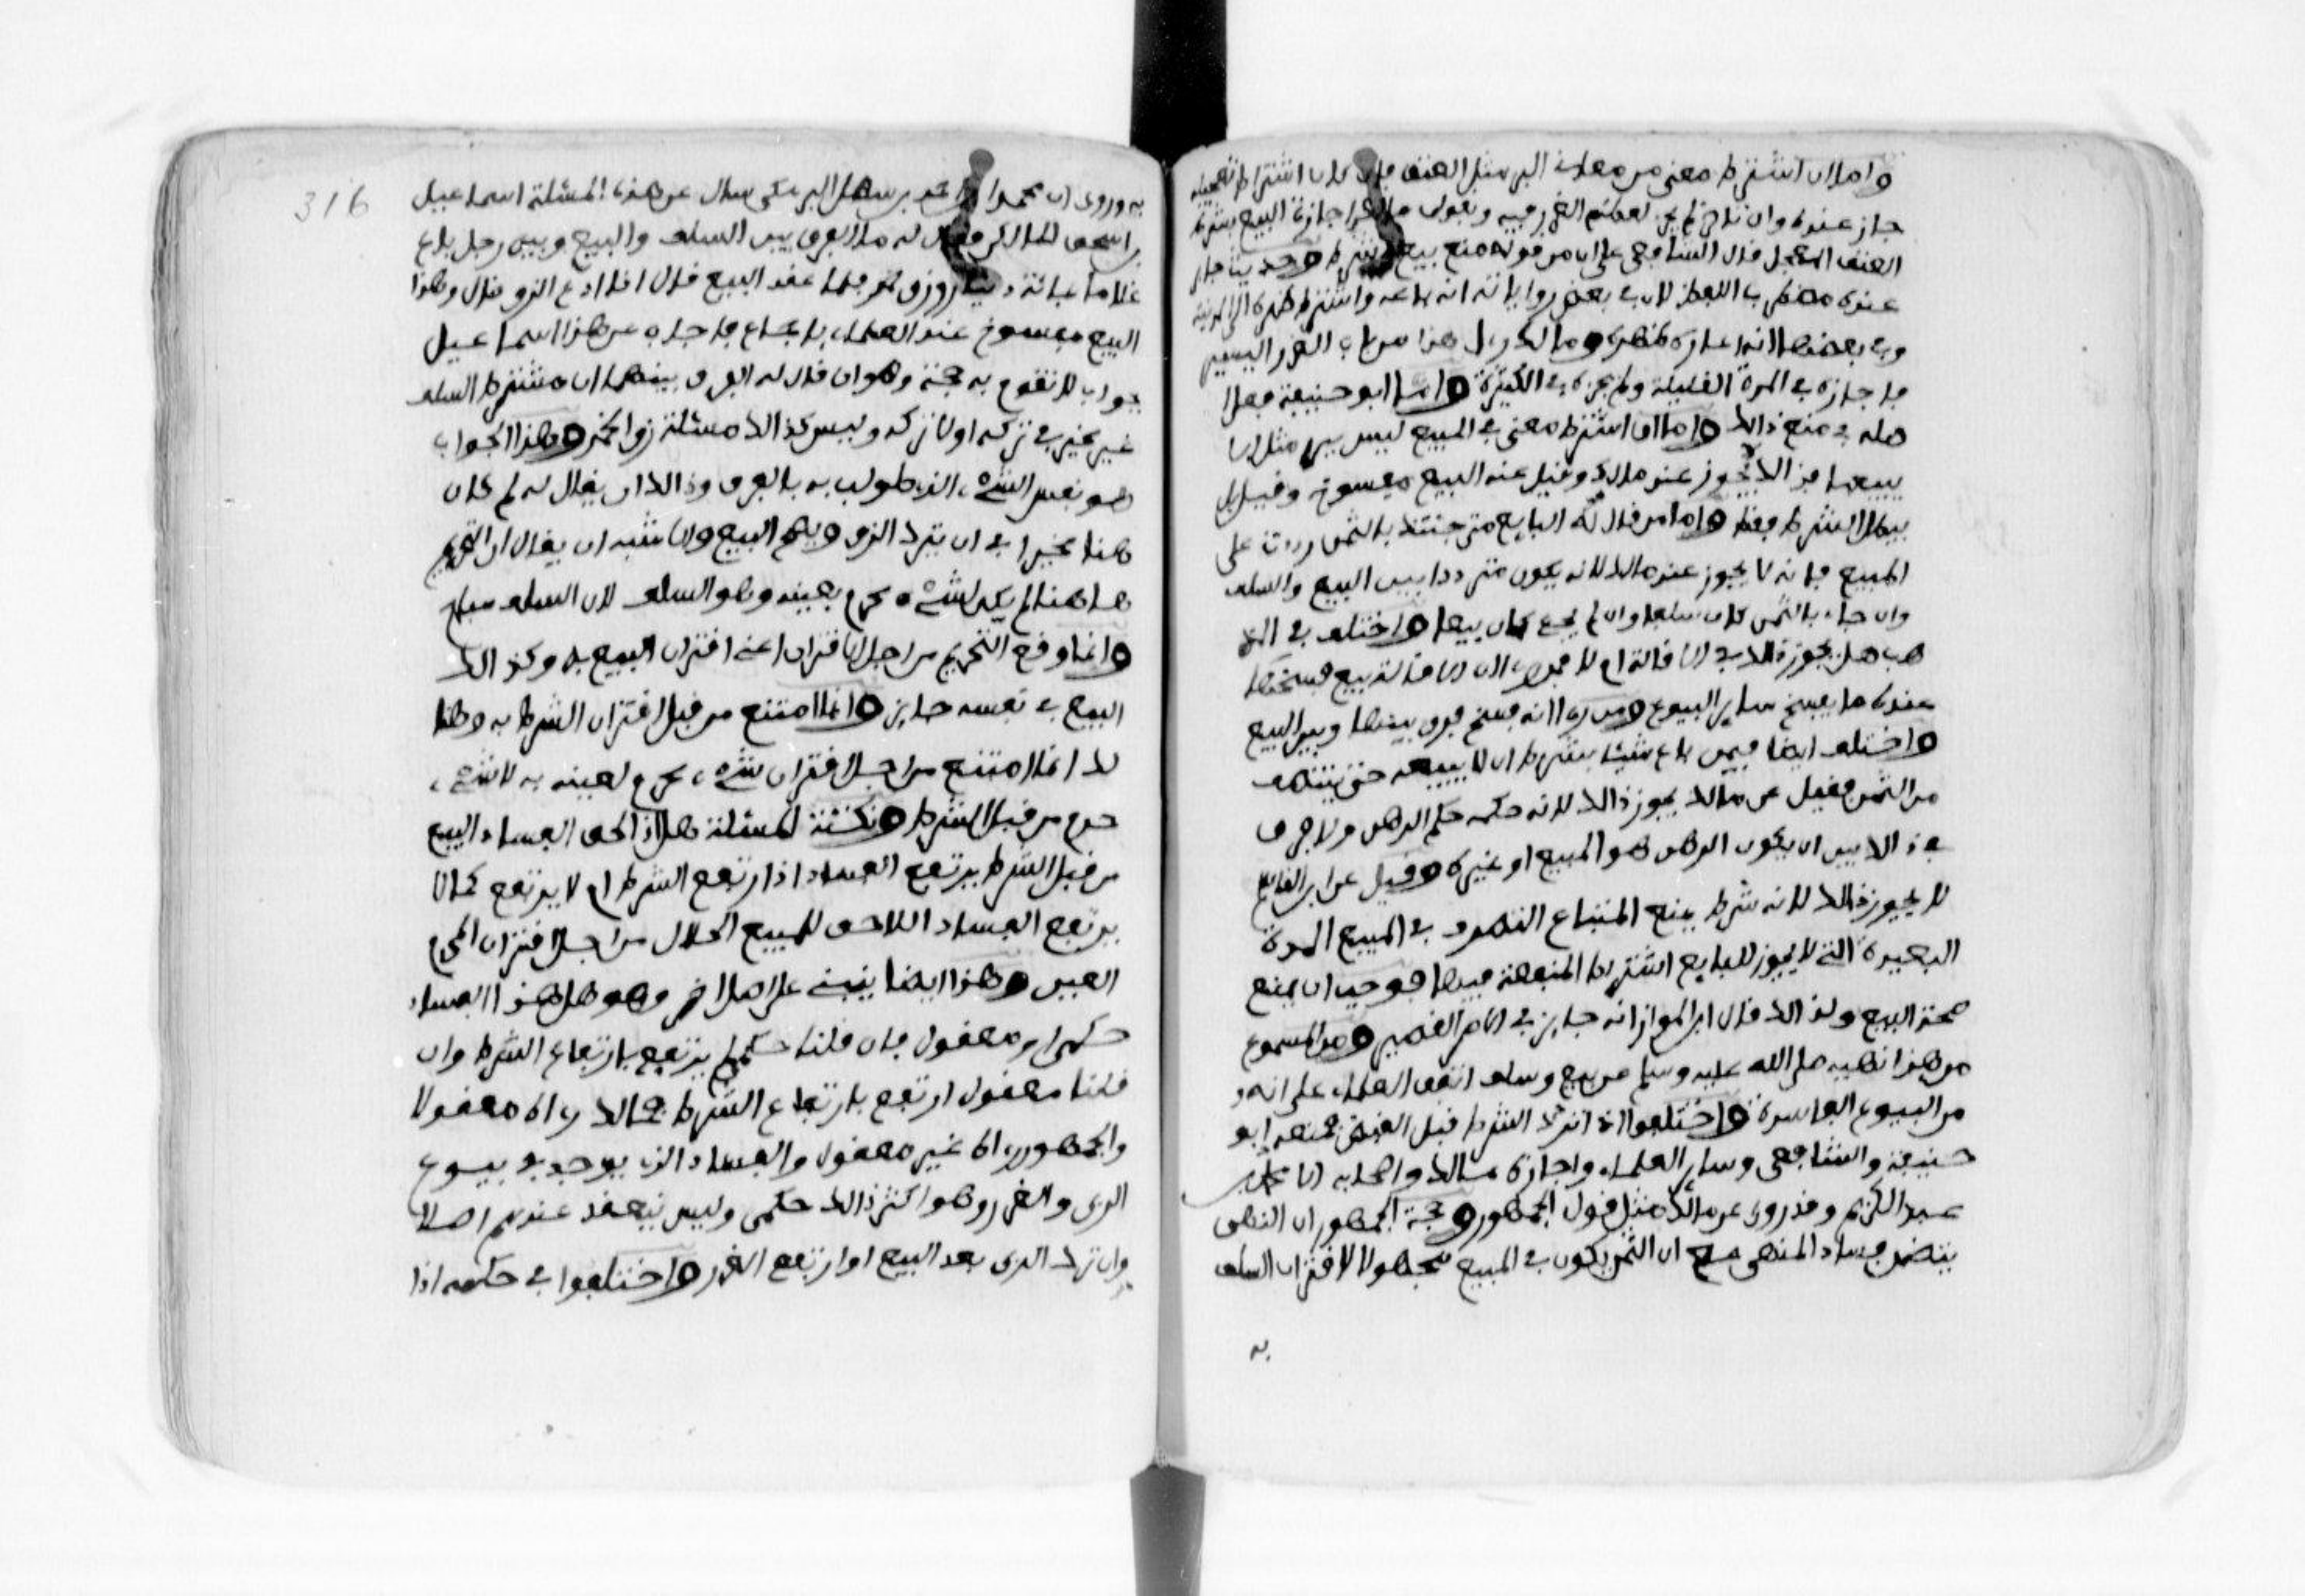 واما ان اشترط معنى من معاني البر مثل العتق فان كان اشترط تعجيله
جاز عنده وان تاخر لم يجز لعظم الغرر فيه وبقول مالك في اجازة البيع بشرط
العتق المعجل قال الشافعي على ان من قوله منع بيع وشرط وحديث جابر
عنده مضطرب اللفظ لان في بعض رواياته انه باعه واشترط ظهره الى المدينة
وفي بعضها انه اعاره ظهره ومالك راى هذا من باب الغرر اليسير
فاجازه في المدة القليلة ولم يجزه في الكثيرة واما ابو حنيفة فعلى
اصله في منع ذالك واما ان اشترط معنى في المبيع ليس ببر مثل الا
يبيعها فذالك لا يجوز عند مالك وقيل عنه البيع مفسوخ وقيل بل
يبطل الشرط فقط واما من قال له البايع متى جئتك بالثمن رددت علي
المبيع فانه لا يجوز عند مالك لانه يكون مترددا بين البيع والسلف
وان جاء بالثمن كان سلفا وان لم يجئ كان بيعا واختلف في المذ
هب هل يجوز ذالك في الاقالة ام لا فمن راى ان الاقالة بيع فسخها
عنده ما يفسخ ساير البيوع ومن راى انه فسخ فرق بينها وبين البيع
واختلف ايضا فيمن باع شيئا بشرط ان لا يبيعه حتى ينتصف
من الثمن فقيل عن مالك يجوز ذالك لانه حكمه حكم الرهن ولا فرق
في ذالك بين ان يكون الرهن هو المبيع او غيره وقيل عن ابن القاسم
لا يجوز ذالك لانه شرط يمنع المبتاع التصرف في المبيع المدة
البعيدة التي لا يجوز للبايع اشتراط المنفعة فيها فوجب ان يمنع
صحة البيع ولذالك قال ابن المواز انه جايز في الامر القصير ومن المسموع
من هذا نهيه صلى الله عليه وسلم عن بيع وسلف اتفق العلماء على انه
من البيوع الفاسدة واختلفوا اذا ترك الشرط قبل القبض فمنعه ابو
حنيفة والشافعي وساير العلماء واجازه مالك واصحابه الا محمد بن
عبد الكريم وقد روى عن مالك مثل قول الجمهور وحجة الجمهور ان النهي
يتضمن فساد المنهي مع ان الثمن يكون في المبيع مجهولا لاقتران السلف
به
316
به وروي ان محمدا بن احمد بن سهل البرمكي سال عن هذه المسئلة اسماعيل
بن اسحق المالكي فقال له ما الفرق بين السلف والبيع وبين رجل باع
غلاما بمائة دينار وزق خمر فلما عقد البيع قال انا ادع الزق قال وهذا
البيع مفسوخ عند العلماء باجماع فاجابه عن هذا اسماعيل
بجواب لا تقوم به حجة وهو ان قال له الفرق بينهما ان مشترط السلف
غير مخير في تركه اولا تركه وليس كذالك مسئلة زق الخمر وهذا الجواب
هو نفس الشيء الذي طولب به بالفرق وذالك ان يقال له لم كان
هنا مخيرا في ان يترك الزق ويصح البيع والاشبه ان يقال ان التحريم
هاهنا لم يكن لشيء محرم بعينه وهو السلف لان السلف مباح
وانما وقع التحريم من اجل الاقتران اعنى اقتران البيع به وكذالك
البيع في نفسه جايز وانما امتنع من قبل اقتران الشرط به وهنا
لك انما امتنع من اجل اقتران شيء محرم لعينه به لا شيء
حرم من قبل الشرط ونكتة المسئلة هل اذا لحق الفساد البيع
من قبل الشرط يرتفع الفساد اذا ارتفع الشرط ام لا يرتفع كما لا
يرتفع الفساد اللاحق للبيع الحلال من اجل اقتران المحرم
العين وهذا ايضا ينبني على اصل اخر وهو هل هذا الفساد
حكمي او معقول فان قلنا حكمي لم يرتفع بارتفاع الشرط وان
قلنا معقول ارتفع بارتفاع الشرط فمالك راه معقولا
والجمهور راه غير معقول والفساد الذي يوجد في بيوع
الربى والغرر وهو اكثر ذالك حكمي وليس ينعقد عندهم اصلا
وان ترك الربى بعد البيع او ارتفع الغرر واختلفوا في حكمه اذا